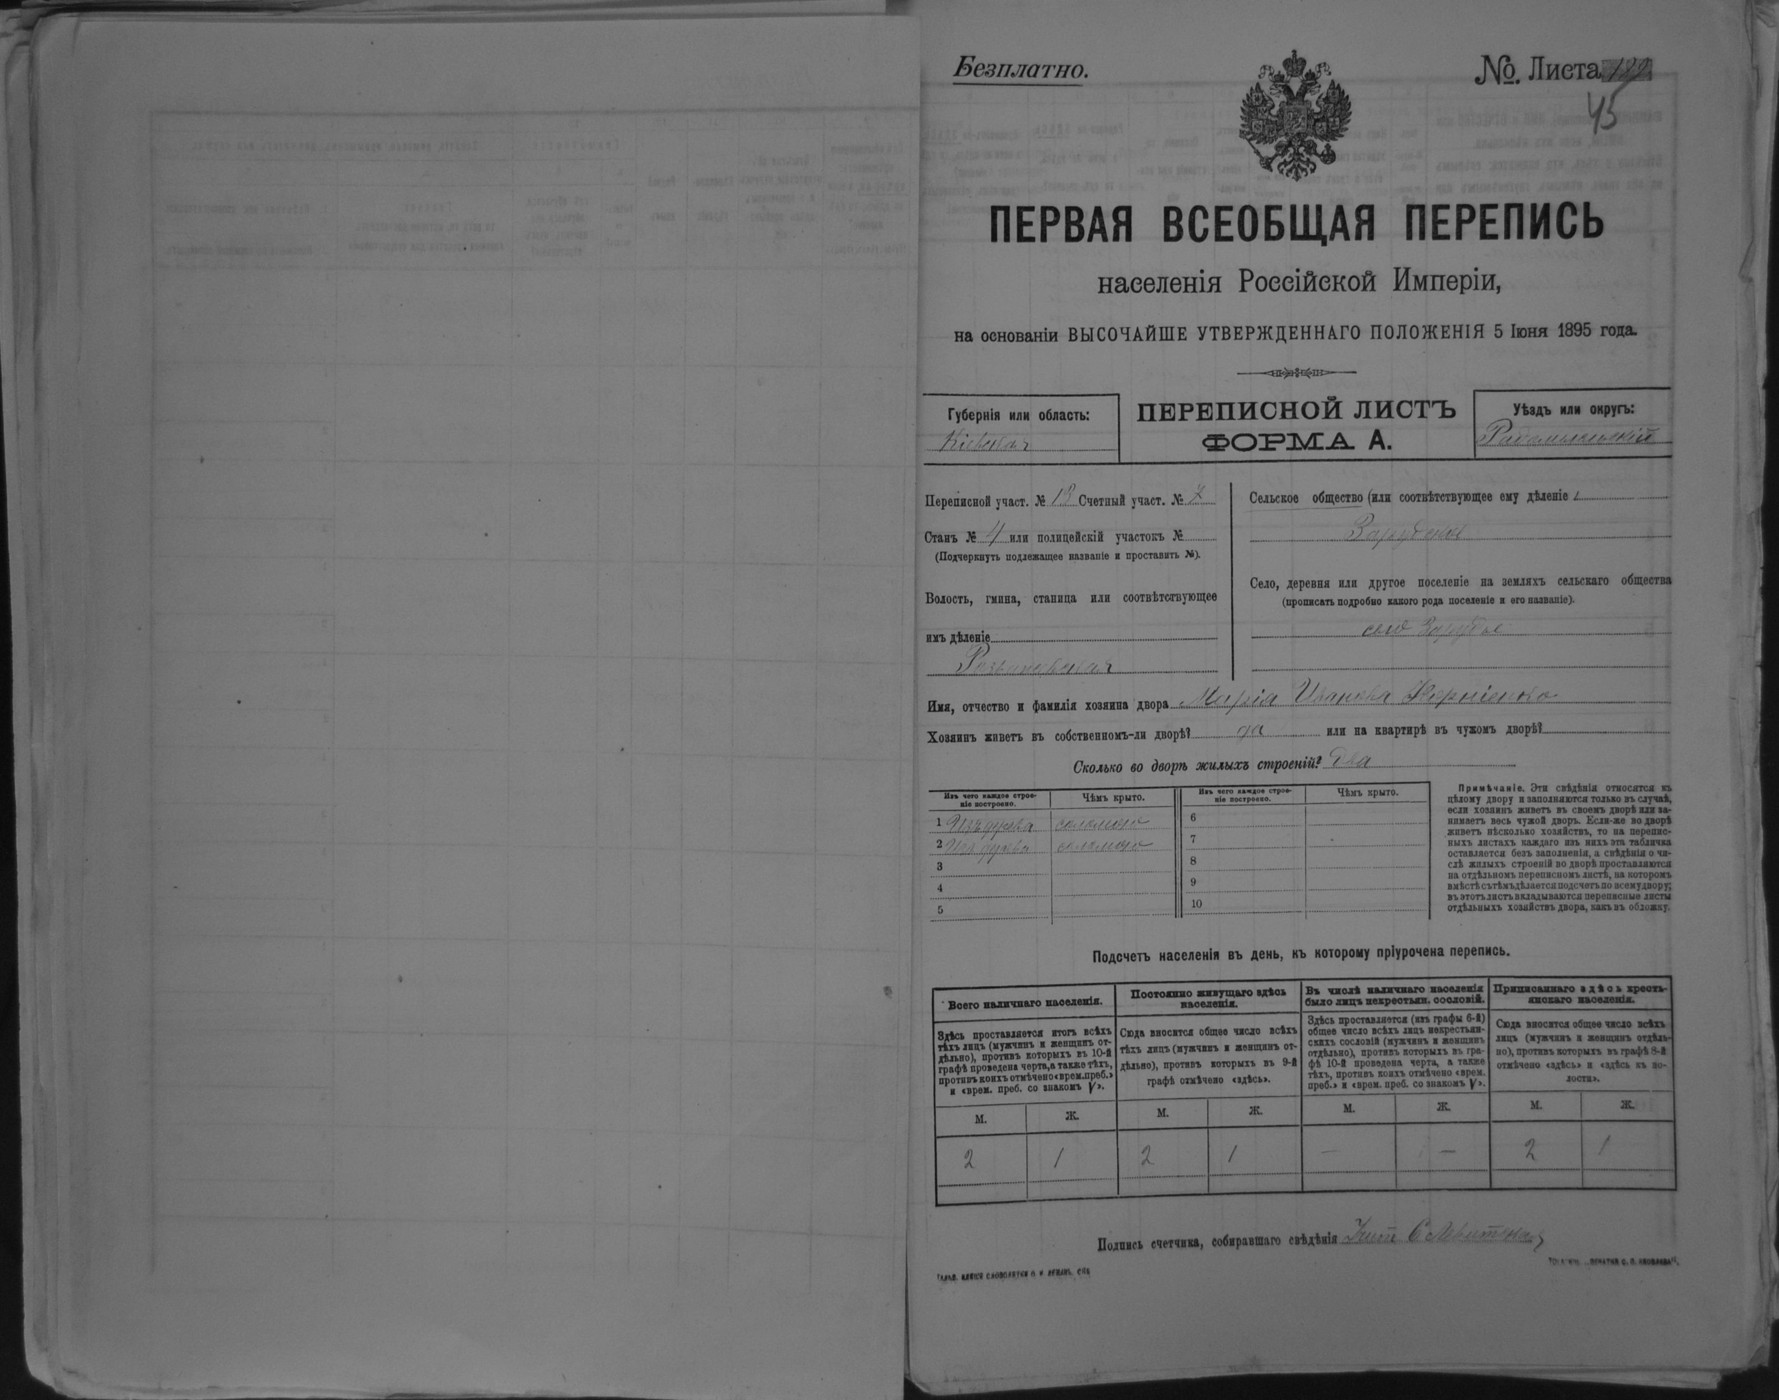 Безплатно.
№. Листа
45
ПЕРВАЯ ВСЕОБЩАЯ ПЕРЕПИСЬ
населенія Россійской Имперіи,
на основаніи ВЫСОЧАЙШЕ УТВЕРЖДЕННАГО ПОЛОЖЕНІЯ 5 Іюня 1895 года.
Губернія или область:
Кіевская
ПЕРЕПИСНОЙ ЛИСТЪ
ФОРМА А.
Уѣздъ или округъ:
Радомысльскій
Переписной участ. № 13 Счетный участ. № 7
Станъ № 4 или полицейскій участокъ №
(Подчеркнуть подлежащее названіе и проставить №).
Волость, гмина, станица или соотвѣтствующее
имъ дѣленіе
Розважевская
Сельское общество (или соотвѣтствующее ему дѣленіе)
Зарудское
Село, деревня или другое поселеніе на земляхъ сельскаго общества
(прописать подробно какого рода поселеніе и его названіе).
село Зарудье
Имя, отчество и фамилія хозяина двора Марія Иванова Корніенко
Хозяинъ живетъ въ собственномъ-ли дворѣ? да или на квартирѣ въ чужомъ дворѣ?
Сколько во дворѣ жилыхъ строеній? два
Изъ чего каждое строе-
ніе построено.
Чѣмъ крыто.
Изъ чего каждое строе-
ніе построено.
Чѣмъ крыто.
1 Изъ дерева соломою
2 Изъ дерева соломою
3
4
5
6
7
8
9
10
Примѣчаніе. Эти свѣдѣнія относятся къ
цѣлому двору и заполняются только въ случаѣ,
если хозяинъ живетъ въ своемъ дворѣ или за-
нимаетъ весь чужой дворъ. Если-же во дворѣ
живетъ нѣсколько хозяйствъ, то на перепис-
ныхъ листахъ каждаго изъ нихъ эта табличка
оставляется безъ заполненія, а свѣдѣнія о чи-
слѣ жилыхъ строеній во дворѣ проставляются
на отдѣльномъ переписномъ листѣ, на которомъ
вмѣстѣ съ тѣмъ дѣлается подсчетъ по всему двору;
въ этотъ листъ вкладываются переписные листы
отдѣльныхъ хозяйствъ двора, какъ въ обложку.
Подсчетъ населенія въ день, къ которому пріурочена перепись.
Всего наличнаго населенія.
Здѣсь проставляется итогъ всѣхъ
тѣхъ лицъ (мужчинъ и женщинъ от-
дѣльно), противъ которыхъ въ 10-й
графѣ проведена черта, а также тѣхъ,
противъ коихъ отмѣчено «врем. преб.»
и «врем. преб. со знакомъ V».
Постоянно живущаго здѣсь
населенія.
Сюда вносится общее число всѣхъ
тѣхъ лицъ (мужчинъ и женщинъ от-
дѣльно), противъ которыхъ въ 9-й
графѣ отмѣчено «здѣсь».
Въ числѣ наличнаго населенія
было лицъ некрестьян. сословій.
Здѣсь проставляется (изъ графы 6-й)
общее число всѣхъ лицъ некрестьян-
скихъ сословій (мужчинъ и женщинъ
отдѣльно), противъ которыхъ въ гра-
фѣ 10-й проведена черта, а также
тѣхъ, противъ коихъ отмѣчено «врем.
преб.» и «врем. преб. со знакомъ V».
Приписаннаго здѣсь кресть-
янскаго населенія.
Сюда вносится общее число всѣхъ
лицъ (мужчинъ и женщинъ отдѣль-
но), противъ которыхъ въ графѣ 8-й
отмѣчено «здѣсь» и «здѣсь къ во-
лости».
М. Ж. М. Ж. М. Ж. М. Ж.
2 1 2 1 — — 2 1
Подпись счетчика, собиравшаго свѣдѣнія